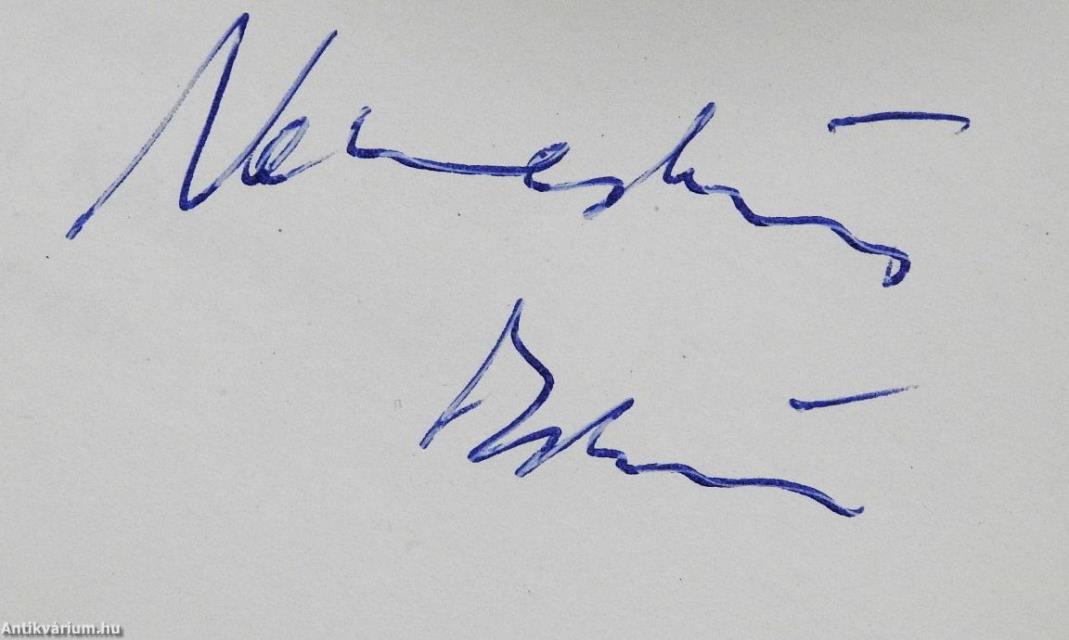 Nemeskürty
István
Antikvárium.hu